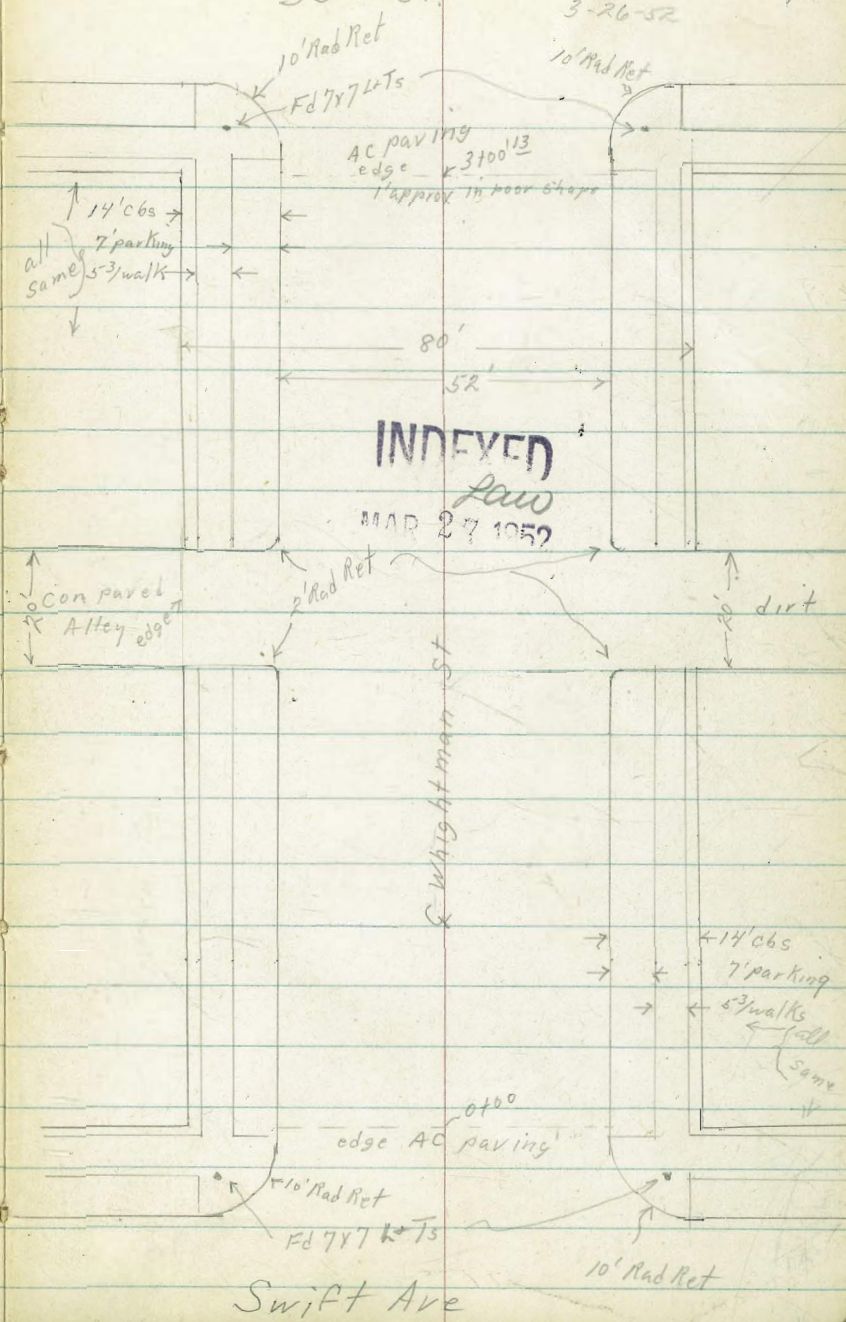 3-26-52
10' Rad Ret
10' Rad Ret
Fd 7x7 L+Ts
AC paving
edge
3+00 13
1' approx in poor shape
14' cbs
7' parking
5 3/walk
all
same
80'
52'
INDEXED
Law
MAR 27 1952
2' Rad Ret
20'
Con paved
Alley edge
20'
dirt
℄ Whightman St
14' cbs
7' parking
5 3/walks
all
same
0+00
edge AC paving
10' Rad Ret
Fd 7x7 L+Ts
10' Rad Ret
Swift Ave